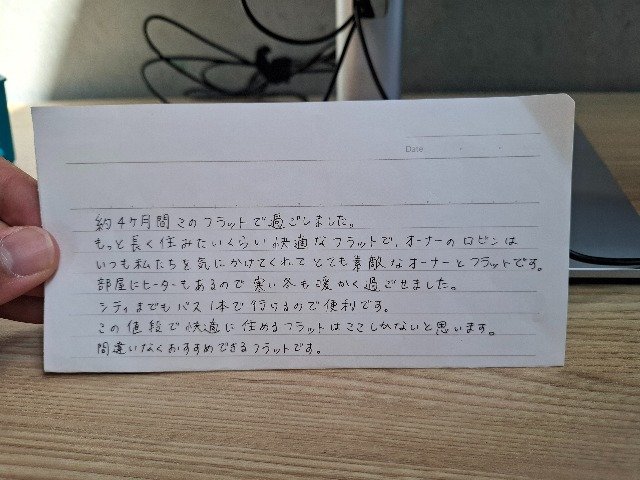 Date
約4ケ月間このフラットで過ごしました。
もっと長く住みたいくらい快適なフラットで、オーナーのロビンは
いつも私たちを気にかけてくれてとても素敵なオーナーとフラットです。
部屋にヒーターもあるので寒い冬も暖かく過ごせました。
シティまでもバス1本で行けるので便利です。
この値段で快適に住めるフラットはここしかないと思います。
間違いなくおすすめできるフラットです。